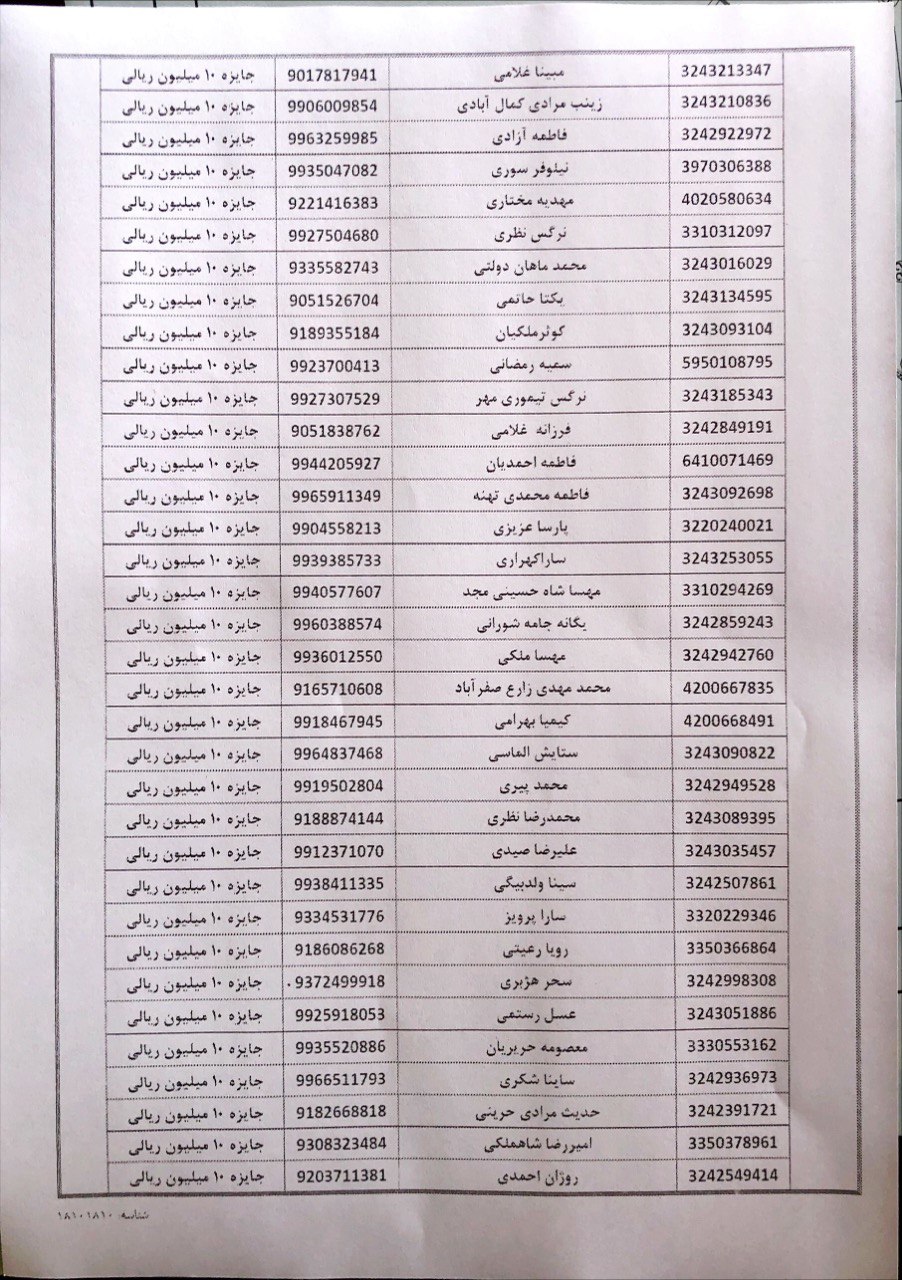 3243213347 مبینا غلامی 9017817941 جایزه ۱۰ میلیون ریالی
3243210836 زینب مرادی کمال آبادی 9906009854 جایزه ۱۰ میلیون ریالی
3242922972 فاطمه آزادی 9963259985 جایزه ۱۰ میلیون ریالی
3970306388 نیلوفر سوری 9935047082 جایزه ۱۰ میلیون ریالی
4020580634 مهدیه مختاری 9221416383 جایزه ۱۰ میلیون ریالی
3310312097 نرگس نظری 9927504680 جایزه ۱۰ میلیون ریالی
3243016029 محمد ماهان دولتی 9335582743 جایزه ۱۰ میلیون ریالی
3243134595 یکتا حاتمی 9051526704 جایزه ۱۰ میلیون ریالی
3243093104 کوثرملکیان 9189355184 جایزه ۱۰ میلیون ریالی
5950108795 سمیه رمضانی 9923700413 جایزه ۱۰ میلیون ریالی
3243185343 نرگس تیموری مهر 9927307529 جایزه ۱۰ میلیون ریالی
3242849191 فرزانه غلامی 9051838762 جایزه ۱۰ میلیون ریالی
6410071469 فاطمه احمدیان 9944205927 جایزه ۱۰ میلیون ریالی
3243092698 فاطمه محمدی تهنه 9965911349 جایزه ۱۰ میلیون ریالی
3220240021 پارسا عزیزی 9904558213 جایزه ۱۰ میلیون ریالی
3243253055 ساراکهراری 9939385733 جایزه ۱۰ میلیون ریالی
3310294269 مهسا شاه حسینی مجد 9940577607 جایزه ۱۰ میلیون ریالی
3242859243 یگانه جامه شورانی 9960388574 جایزه ۱۰ میلیون ریالی
3242942760 مهسا ملکی 9936012550 جایزه ۱۰ میلیون ریالی
4200667835 محمد مهدی زارع صفرآباد 9165710608 جایزه ۱۰ میلیون ریالی
4200668491 کیمیا بهرامی 9918467945 جایزه ۱۰ میلیون ریالی
3243090822 ستایش الماسی 9964837468 جایزه ۱۰ میلیون ریالی
3242949528 محمد پیری 9919502804 جایزه ۱۰ میلیون ریالی
3243089395 محمدرضا نظری 9188874144 جایزه ۱۰ میلیون ریالی
3243035457 علیرضا صیدی 9912371070 جایزه ۱۰ میلیون ریالی
3242507861 سینا ولدبیگی 9938411335 جایزه ۱۰ میلیون ریالی
3320229346 سارا پرویز 9334531776 جایزه ۱۰ میلیون ریالی
3350366864 رویا رعیتی 9186086268 جایزه ۱۰ میلیون ریالی
3242998308 سحر هژبری 9372499918 جایزه ۱۰ میلیون ریالی
3243051886 عسل رستمی 9925918053 جایزه ۱۰ میلیون ریالی
3330553162 معصومه حریریان 9935520886 جایزه ۱۰ میلیون ریالی
3242936973 ساینا شکری 9966511793 جایزه ۱۰ میلیون ریالی
3242391721 حدیث مرادی حرینی 9182668818 جایزه ۱۰ میلیون ریالی
3350378961 امیررضا شاهملکی 9308323484 جایزه ۱۰ میلیون ریالی
3242549414 روژان احمدی 9203711381 جایزه ۱۰ میلیون ریالی
شناسه: ۱۸۱۰۱۸۱۰